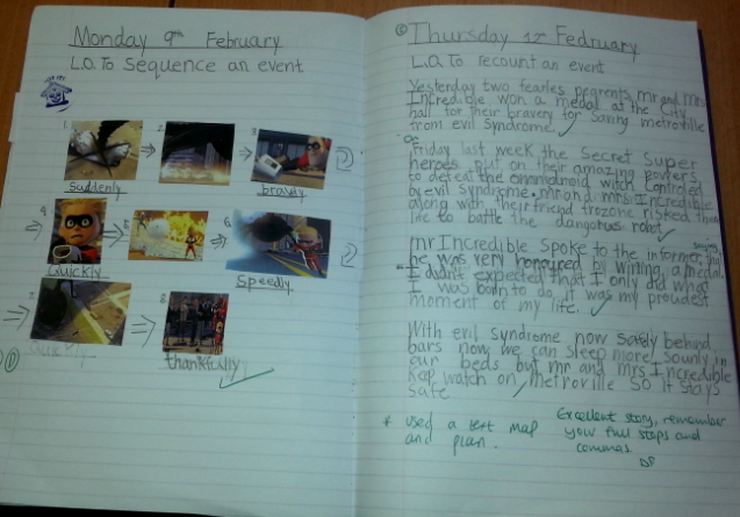 Monday 9th February
L.O. To Sequence an event
1.
2.
3.
Suddenly
bravly
4.
5.
6.
Quickly
Speedly
7.
8.
Quickly
thankfully
Thursday 12th Fedruary
L.O. To recount an event
Yesterday two fearles perents, mr and mrs
Incredible won a medal at the City
hall for their bravery for Saving metroville
from evil Syndrome.
On
Friday last week the Secret Super
heroes put on their amazing powers
to defeat the witch Controled
by evil Syndrome. mr and mrs Incredible
along with their friend frozone risked their
life to battle the dangorus robot
mr Incredible Spoke to the informer, saying that
he was very honoured by wining a medal.
"I didn't expected that I only did what
I was born to do it was my proudest
moment of my life.
With evil Syndrome now Safely behind
bars now, we can Sleep more Sounly in
our beds but mr and mrs Incredible
Kep watch on metroville So it stays
Safe
* used a text map
and plan.
Excellent story, remember
your full stops and
commas.
DP